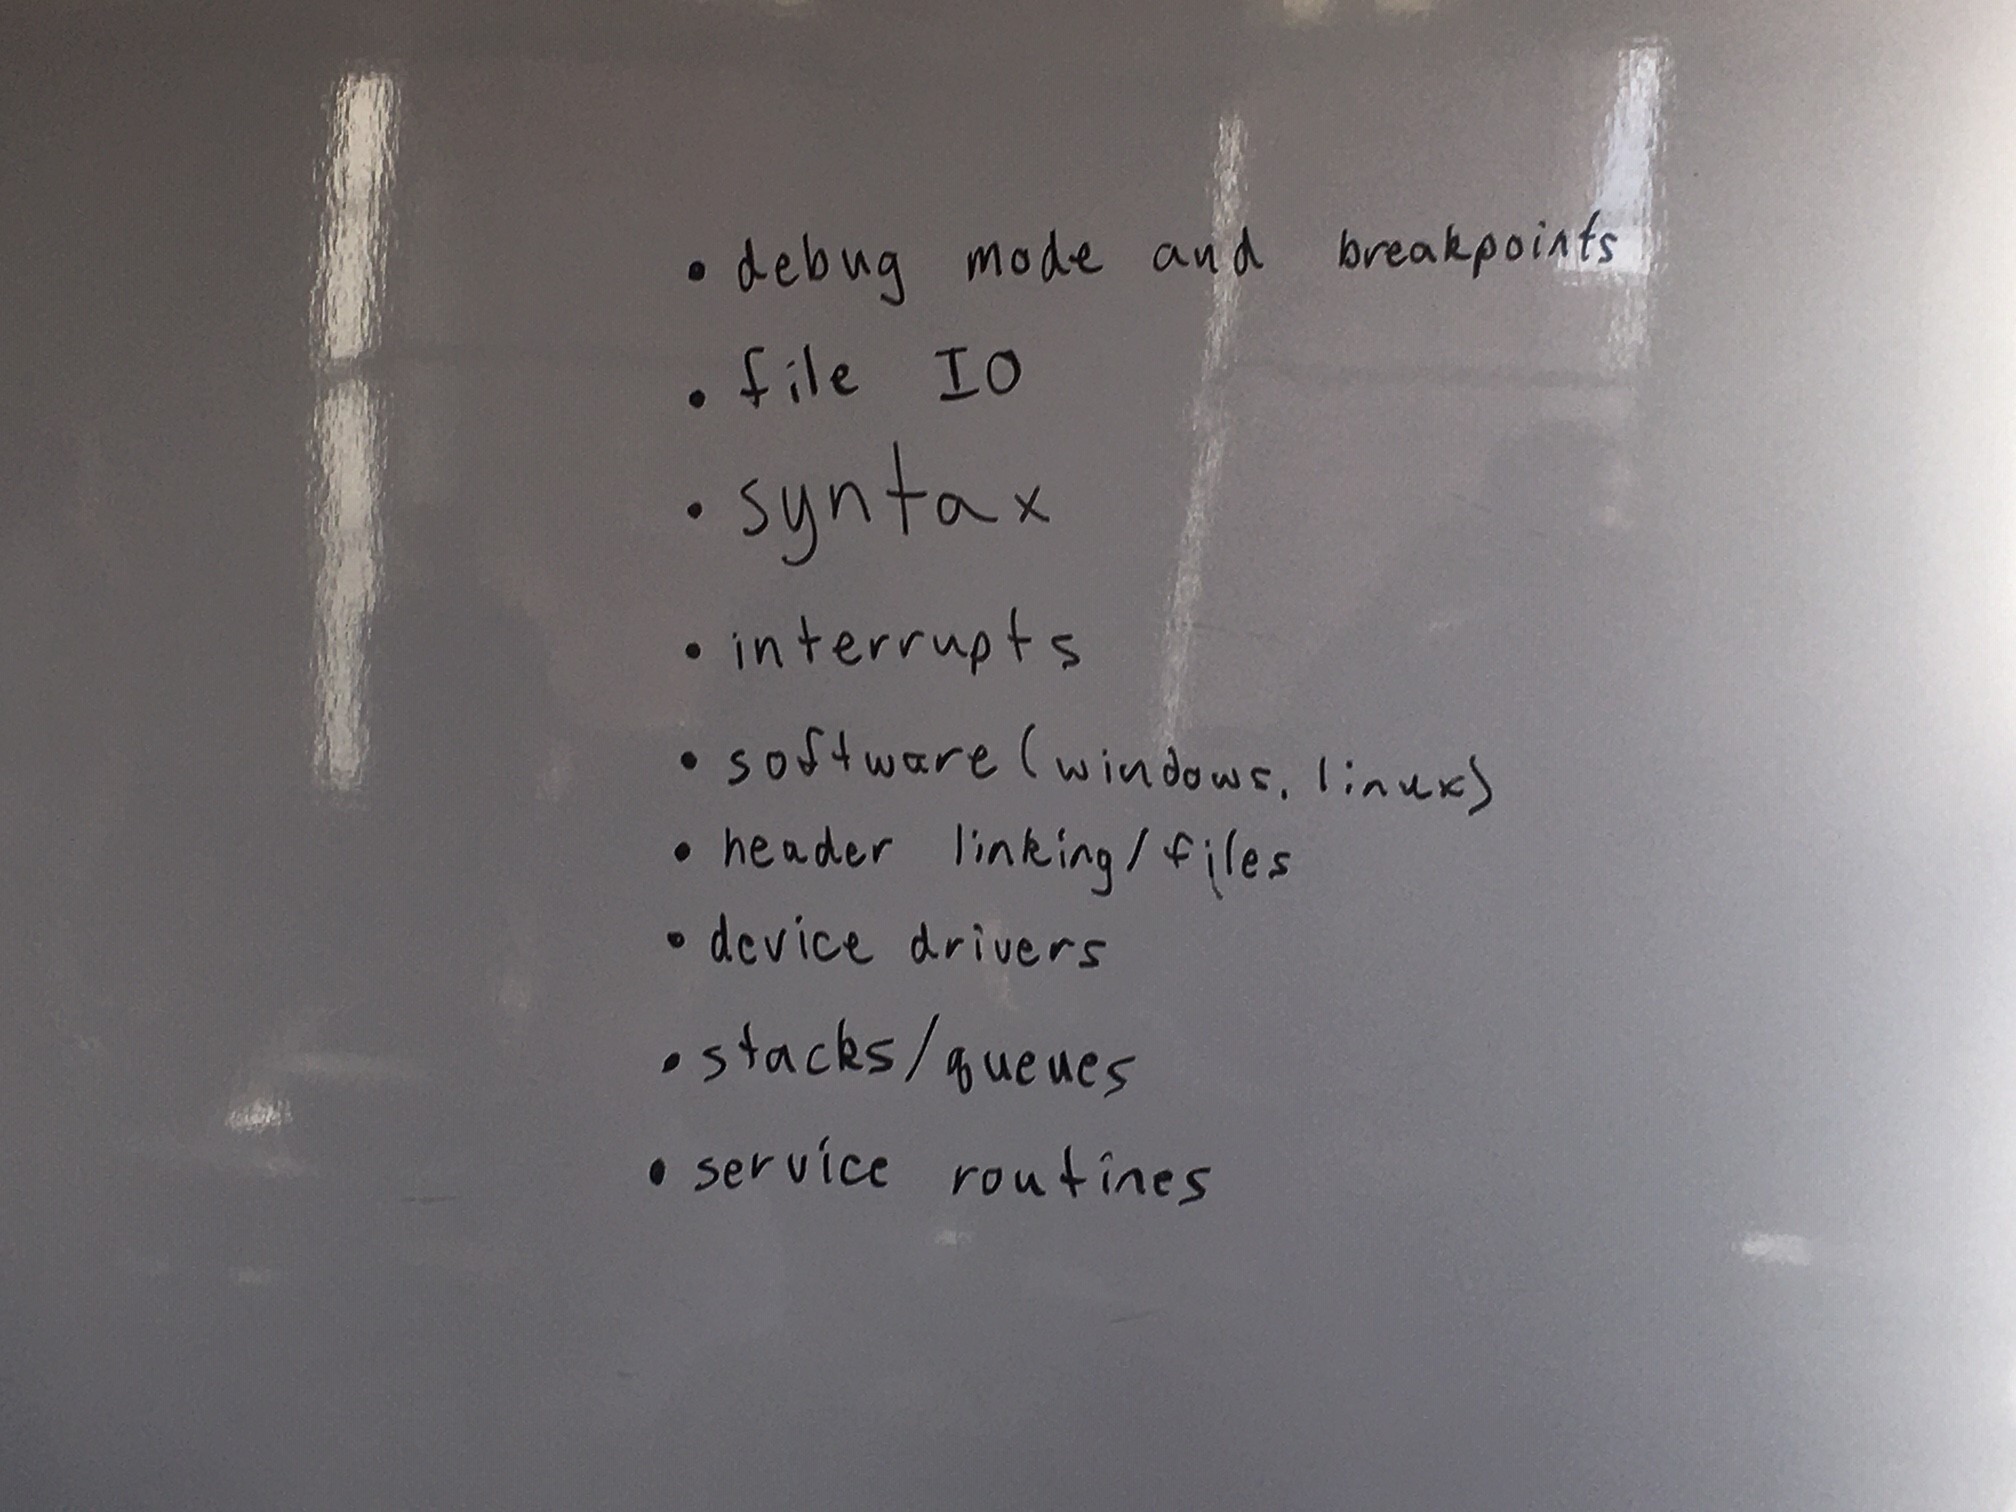 • debug mode and breakpoints
• file IO
• syntax
• interrupts
• software (windows, linux)
• header linking/files
• device drivers
• stacks/queues
• service routines